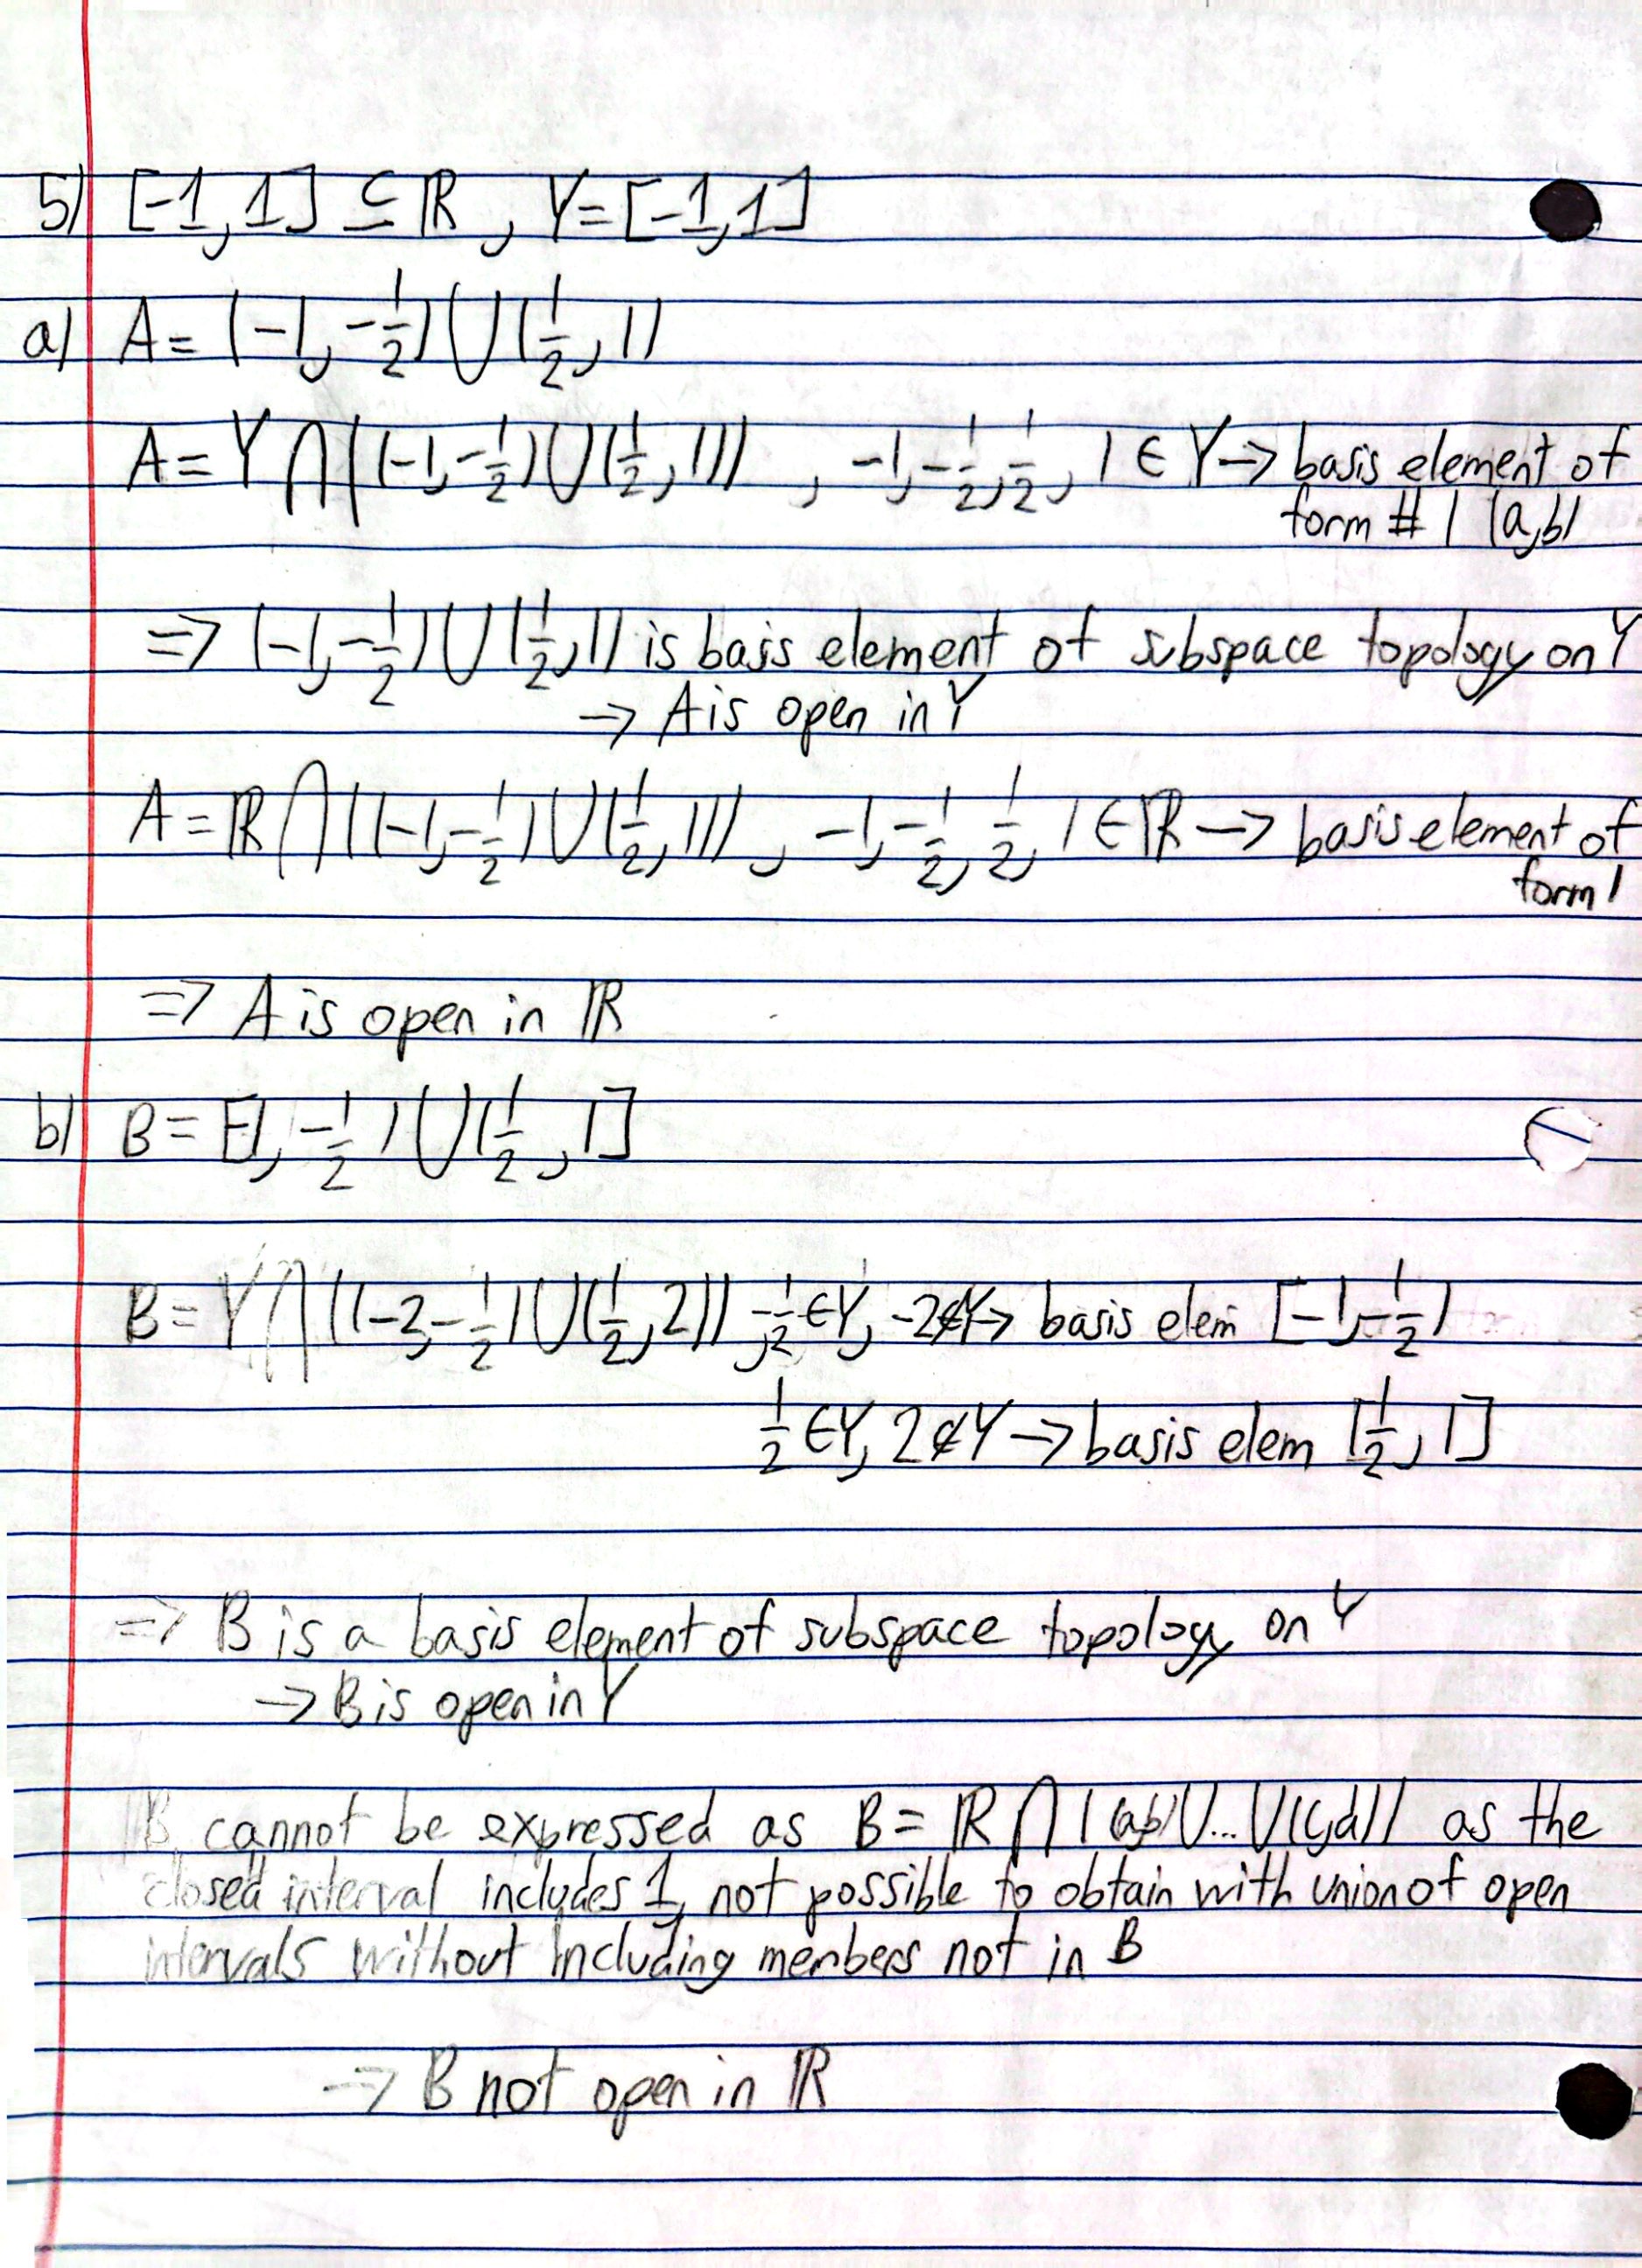 5) [-1, 1] ⊆ ℝ , Y = [-1, 1]
a) A = (-1, -1/2) ∪ (1/2, 1)
A = Y ∩ ((-1, -1/2) ∪ (1/2, 1)) , -1, -1/2, 1/2, 1 ∈ Y → basis element of
form # 1 (a,b)
=> (-1, -1/2) ∪ (1/2, 1) is basis element of subspace topology on Y
→ A is open in Y
A = ℝ ∩ ((-1, -1/2) ∪ (1/2, 1)) , -1, -1/2, 1/2, 1 ∈ ℝ → basis element of
form 1
=> A is open in ℝ
b) B = [-1, -1/2) ∪ (1/2, 1]
B = Y ∩ ((-2, -1/2) ∪ (1/2, 2)) , -1/2 ∈ Y, -2 ∉ Y → basis elem [-1, -1/2)
1/2 ∈ Y, 2 ∉ Y → basis elem (1/2, 1]
=> B is a basis element of subspace topology on Y
→ B is open in Y
B cannot be expressed as B = ℝ ∩ ((a,b) ∪ ... ∪ (c,d)) as the
closed interval includes 1, not possible to obtain with union of open
intervals without including members not in B
=> B not open in ℝ